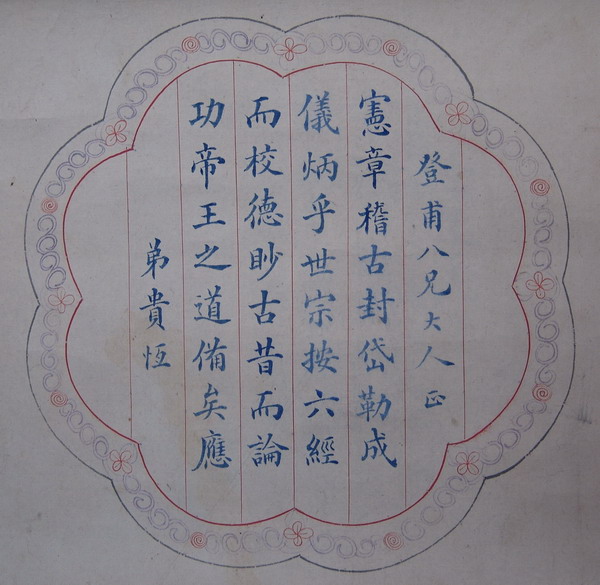 登甫八兄大人正
憲章稽古封岱勒成
儀炳乎世宗按六經
而校德眇古昔而論
功帝王之道備矣應
弟貴恆